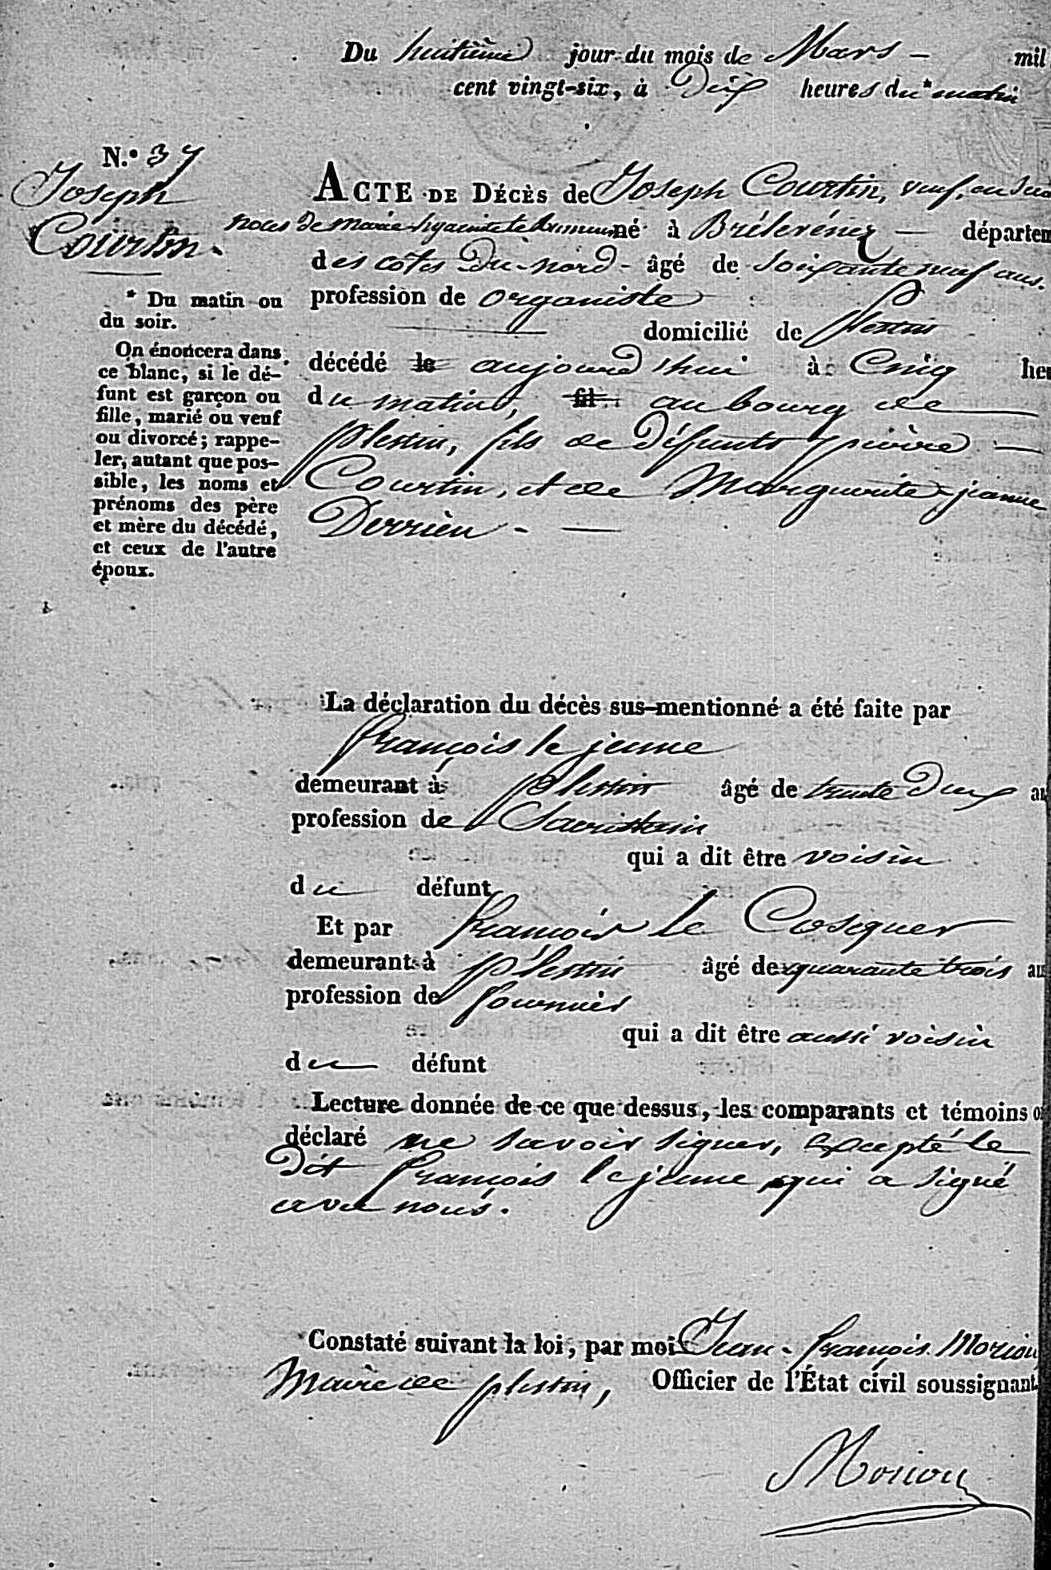 Du huitième jour du mois de Mars — mil
cent vingt-six, à Dix heures du * matin
N.° 37
Joseph
Courtin.
ACTE DE DÉCÈS de Joseph Courtin, veuf, en
noces de marie né à Brélévénez — départem
des côtes Du-nord - âgé de Soixante neuf ans.
profession de organiste
domicilié de Plestin
décédé le aujourd'hui à Cinq heu
du matin, fil au bourg de
plestin, fils de Défunts pierre —
Courtin, et de Marguerite-jeanne
Derrien - —
* Du matin ou
du soir.
On énoncera dans
ce blanc, si le dé-
funt est garçon ou
fille, marié ou veuf
ou divorcé; rappe-
ler, autant que pos-
sible, les noms et
prénoms des père
et mère du décédé,
et ceux de l'autre
époux.
La déclaration du décès sus-mentionné a été faite par
françois le jeune
demeurant à plestin âgé de trente Deux an
profession de Sacristain
qui a dit être voisin
du défunt
Et par françois le Cosquer
demeurant à plestin âgé de quarante trois an
profession de fournier
qui a dit être aussi voisin
du défunt
Lecture donnée de ce que dessus, les comparants et témoins o
déclaré ne savoir signer, excepté le
Dit françois le jeune qui a signé
avec nous.
Constaté suivant la loi, par moi Jean-françois Moriou
Maire de plestin, Officier de l'État civil soussignant
Moriou